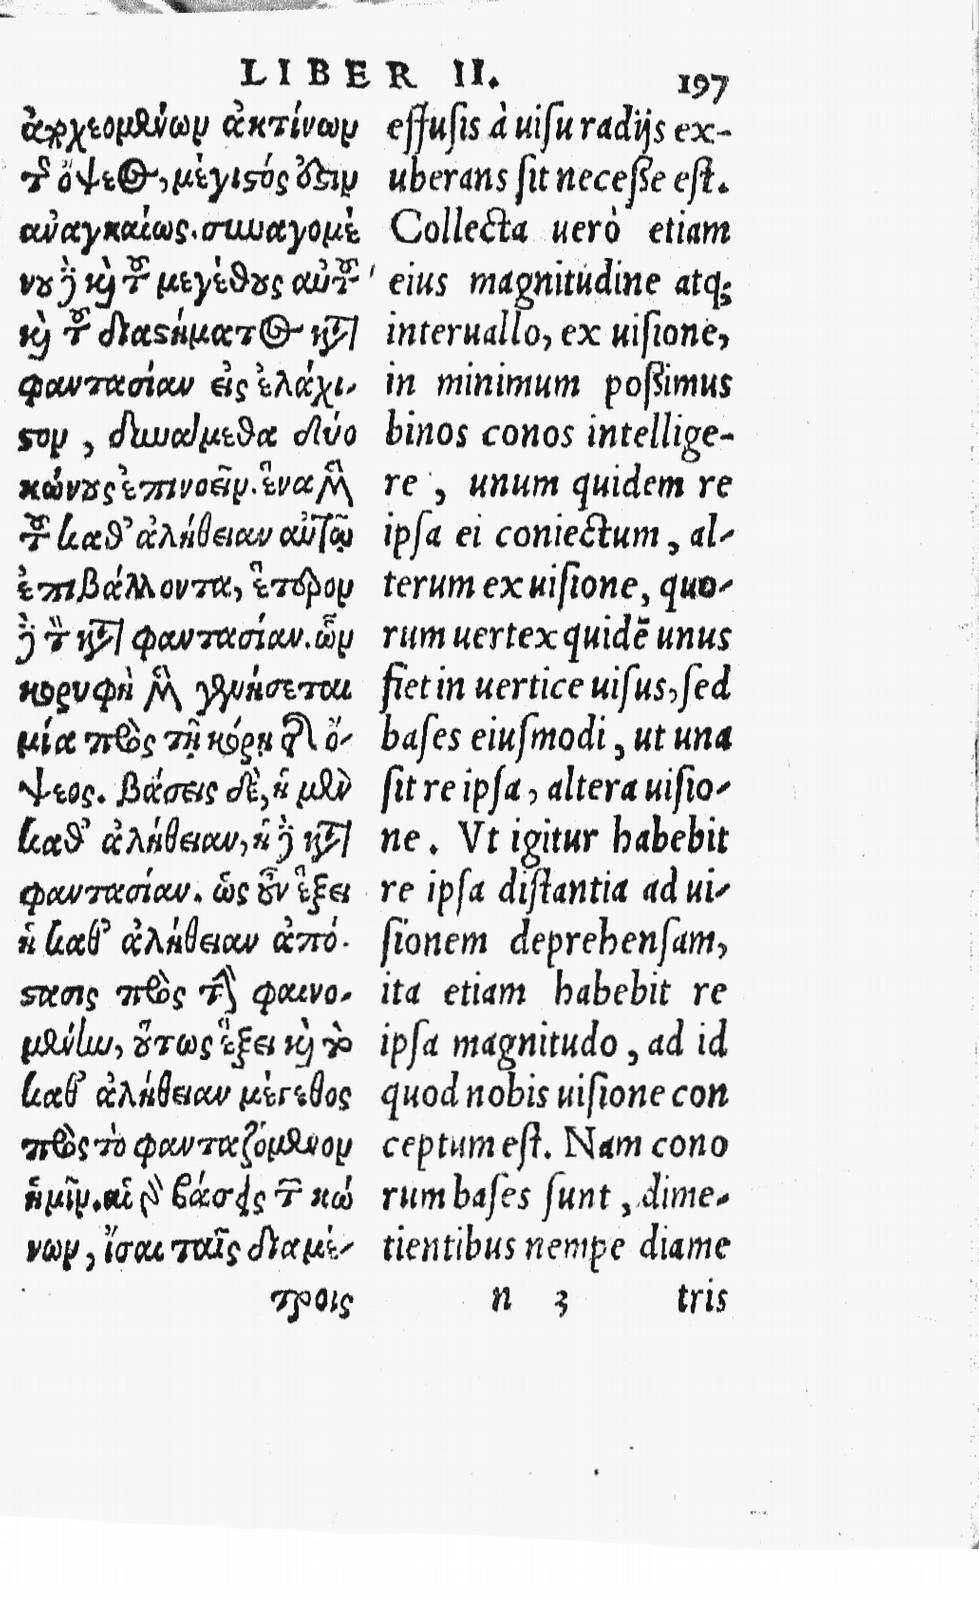 LIBER II. 197
ἀρχεομένων ἀκτίνων
τ͂ ὄψεος, μέγιστός ὅστιν
ἀναγκαίως. συναγομέ
νου δὲ καὶ τοῦ μεγέθους αὐτοῦ
καὶ τοῦ διαστήματος κατὰ
φαντασίαν εἰς ἐλάχι-
στον, δυνάμεθα δύο
κώνους ἐπινοεῖν. ἕνα μὲν
τοῦ καθ' ἀλήθειαν αὐτῷ
ἐπιβάλλοντα, ἕτερον
δὲ τ῀ κατὰ φαντασίαν. ὧν
κορυφὴ μὲν γενήσεται
μία πρὸς τῇ κόρῃ τῆς ὄ-
ψεος. βάσεις δὲ, ἡ μὲν
καθ' ἀλήθειαν, ἡ δὲ κατὰ
φαντασίαν. ὡς οὖν ἕξει
ἡ καθ' ἀλήθειαν ἀπό-
στασις πρὸς τὴν φαινο-
μένην, οὕτως ἕξει καὶ τὸ
καθ' ἀλήθειαν μέγεθος
πρὸς τὸ φανταζόμενον
ἡμῖν. αἱ γὰρ βάσεις τῶν κώ
νων, ἴσαι ταῖς διαμέ-
τροις
effusis à uisu radijs ex-
uberans sit necesse est.
Collecta uerò etiam
eius magnitudine atq;
interuallo, ex uisione,
in minimum possimus
binos conos intellige-
re, unum quidem re
ipsa ei coniectum, al-
terum ex uisione, quo-
rum uertex quidē unus
fiet in uertice uisus, sed
bases eiusmodi, ut una
sit re ipsa, altera uisio-
ne. Vt igitur habebit
re ipsa distantia ad ui-
sionem deprehensam,
ita etiam habebit re
ipsa magnitudo, ad id
quod nobis uisione con
ceptum est. Nam cono
rum bases sunt, dime-
tientibus nempe diame
n 3 tris